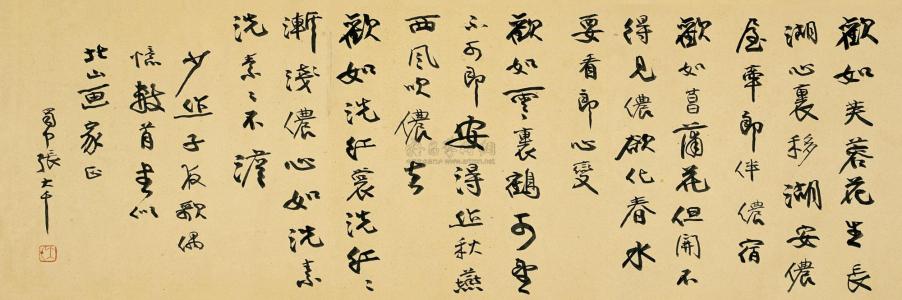 歡如芙蓉花生長
湖心裏移湖安儂
屋牽郎伴儂宿
歡如菖蒲花但開不
得見儂欲化春水
要看郎心變
歡如雲裏鶴可望
不可即安得作秋燕
西風吹儂去
歡如洗紅裳洗紅々
漸淺儂心如洗素
洗素々不
少作子夜歌偶
憶數首書似
北山画家正
蜀中張大千